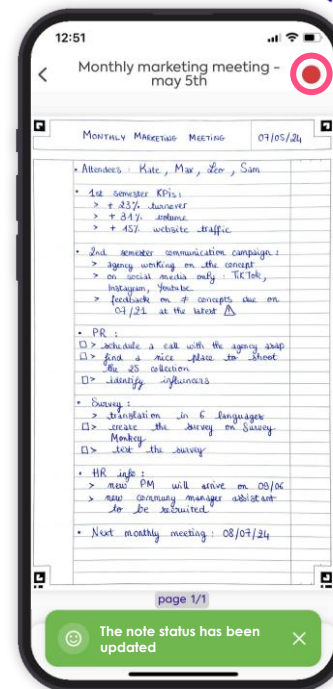 12:51
Monthly marketing meeting -
may 5th
MONTHLY MARKETING MEETING 07/05/24
• Attendees : Kate, Max, Leo, Sam
• 1st semester KPIs :
> + 23% turnover
> + 31% volume
> + 45% website traffic
• 2nd semester communication campaign :
> agency working on the concept
> on social media only : TikTok,
Instagram, Youtube.
> feedback on ≠ concepts due on
07/21 at the latest ⚠
• PR :
> schedule a call with the agency asap
> find a nice place to shoot
the 25 collection
> identify influencers
• Survey :
> translation in 6 languages
> create the survey on Survey
Monkey
> test the survey
• HR info :
> new PM will arrive on 09/06
> new community manager assistant
to be recruited
• Next monthly meeting : 08/07/24
page 1/1
The note status has been
updated